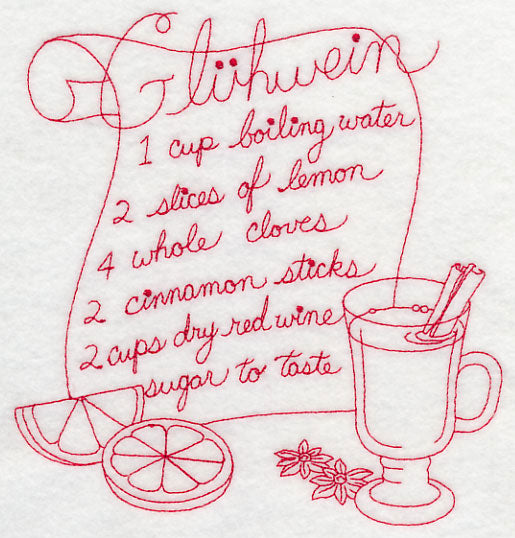 Glühwein
1 cup boiling water
2 slices of lemon
4 whole cloves
2 cinnamon sticks
2 cups dry red wine
sugar to taste